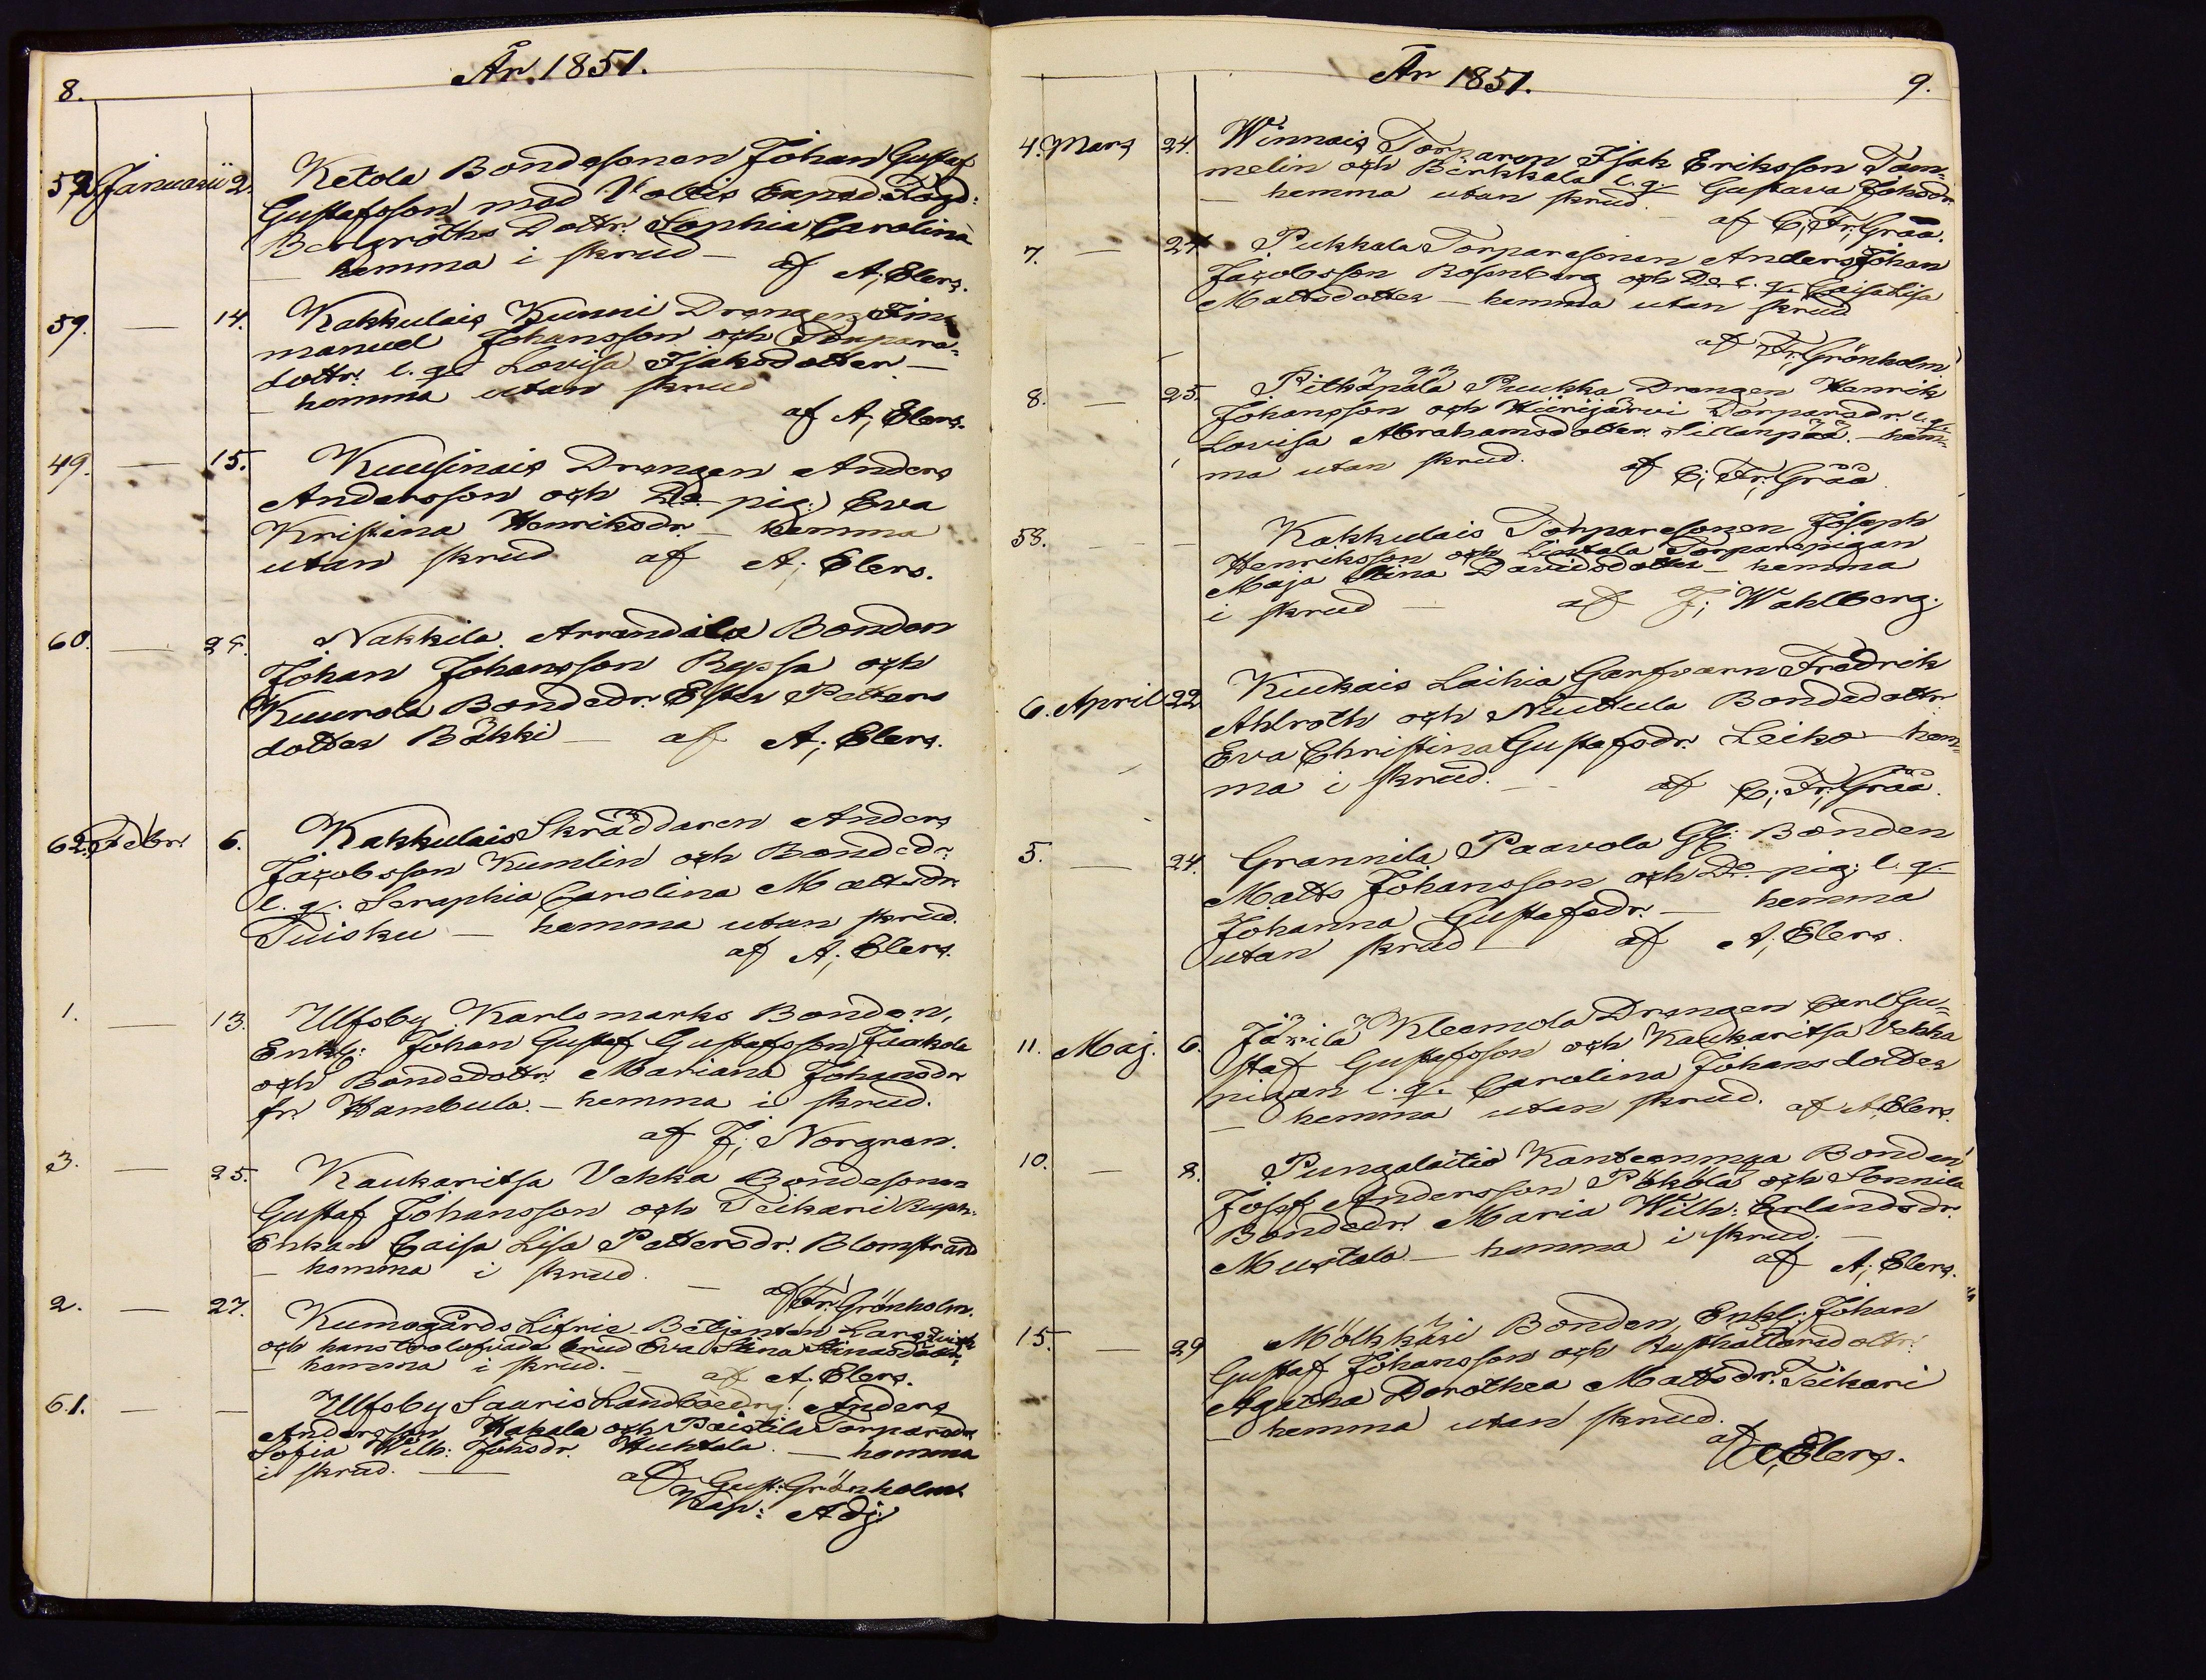 8.
År 1851.
52. Januarii 2. Ketola Bondesonen Johan Gustaf
Gustafsson med Voltis Exped. Fogd:
Bergroths Dottr. Sophia Carolina
— hemma i skrud — af A; Elers.
59. — 14. Kakkulais Kunni Drengen Im¬
manuel Johansson och Torpare¬
dottr. l. q. Lovisa Isaksdotter —
— hemma utan skrud
af A; Elers.
49. — 15. Kuusinais Drengen Anders
Andersson och Do pig:) Eva
Kristina Henriksdr. — hemma
utan skrud af A; Elers.
60. — 24. Nakkila Arrandila Bonden
Johan Johansson Ryssa och
Kuurola Bondedr. Ester Petters
dotter Bäkki — af A; Elers.
62. Febr. 6. Kakkulais Skräddaren Anders
Jacobsson Kumlin och Bondedr.
l. q. Seraphia Carolina Mattsdr.
Tuisku — hemma utan skrud.
af A; Elers.
1. — 13. Ulfsby Karlsmarks Bonden,
Enkl: Johan Gustaf Gustafsson
och Bondedottr. Mariana Johansdr
fr. Hambula. — hemma i skrud.
af J; Norgren.
3. — 25. Kaukaritsa Vehka Bondesonen
Gustaf Johansson och Teikari Rusth:
Enkan Caisa Lisa Pettersdr. Blomstrand
— hemma i skrud. —
af Fr. Grönholm.
2. — 27. Kumogårds Betjenten Lars
och hans trolofvade brud Eva Stina
— hemma i skrud. — af A; Elers.
61. — — Ulfsby Sauris Landboedrg: Anders
Andersson Hakala och Paistila Torparedr
Sofia Wilh: Johsdr. Huhtala. — hemma
i skrud. —
af Gust: Grönholm
Kap: Adj:
År 1851.
9.
4. Mars 24. Winnais Torparen Isak Eriksson Tam¬
melin och Birkkala l. q. Gustava Johsdr.
— hemma utan skrud. —
af C; Fr; Gråå.
7. — 24 Pukkala Torparesonen Anders Johan
Jacobsson Rosenberg och Do l. q. Caisa Lisa
Mattsdotter — hemma utan skrud
af Fr; Grönholm
8. — 25. Pitkäpälä Puukka Drengen Henrik
Johansson och Hiirijärvi Torparedr. l. q.
Lovisa Abrahamsdotter Sillanpää. — hem¬
ma utan skrud. af C; Fr; Gråå
58. — — Kakkulais Torparesonen Joseph
Henriksson och Torparepigan
Maja Stina Davidsdotter — hemma
i skrud — af J; Wahlberg.
6. April 22 Kiukais Laihia Garfvarn Fredrik
Ahlroth och Nuttula Bondedottr
Eva Christina Gustafsdr. Leiko — hem¬
ma i skrud. — af C; Fr; Gråå.
5. — 24. Grannila Paavola Gl: Bonden
Matts Johansson och Do pig; l. q.
Johanna Gustafsdr. — hemma
utan skrud — af A; Elers.
11. Maj. 6. Järilä Kleemola Drengen Carl Gu¬
staf Gustafsson och Kaukaritsa Vehka
pigan l. q. Carolina Johansdotter
— hemma utan skrud. af A; Elers.
10. — 8. Pungalaitio Kanteenmaa Bonden
Josef Andersson Pökölä och Sonnila
Bondedr. Maria Wilh: Erlandsdr.
Mustala — hemma i skrud. —
af A; Elers.
15. — 29 Bonden, Enkl: Johan
Gustaf Johansson och Rusthållaredottr:
Agatha Dorothea Mattsdr. Teikari
— hemma utan skrud.
af A; Elers.